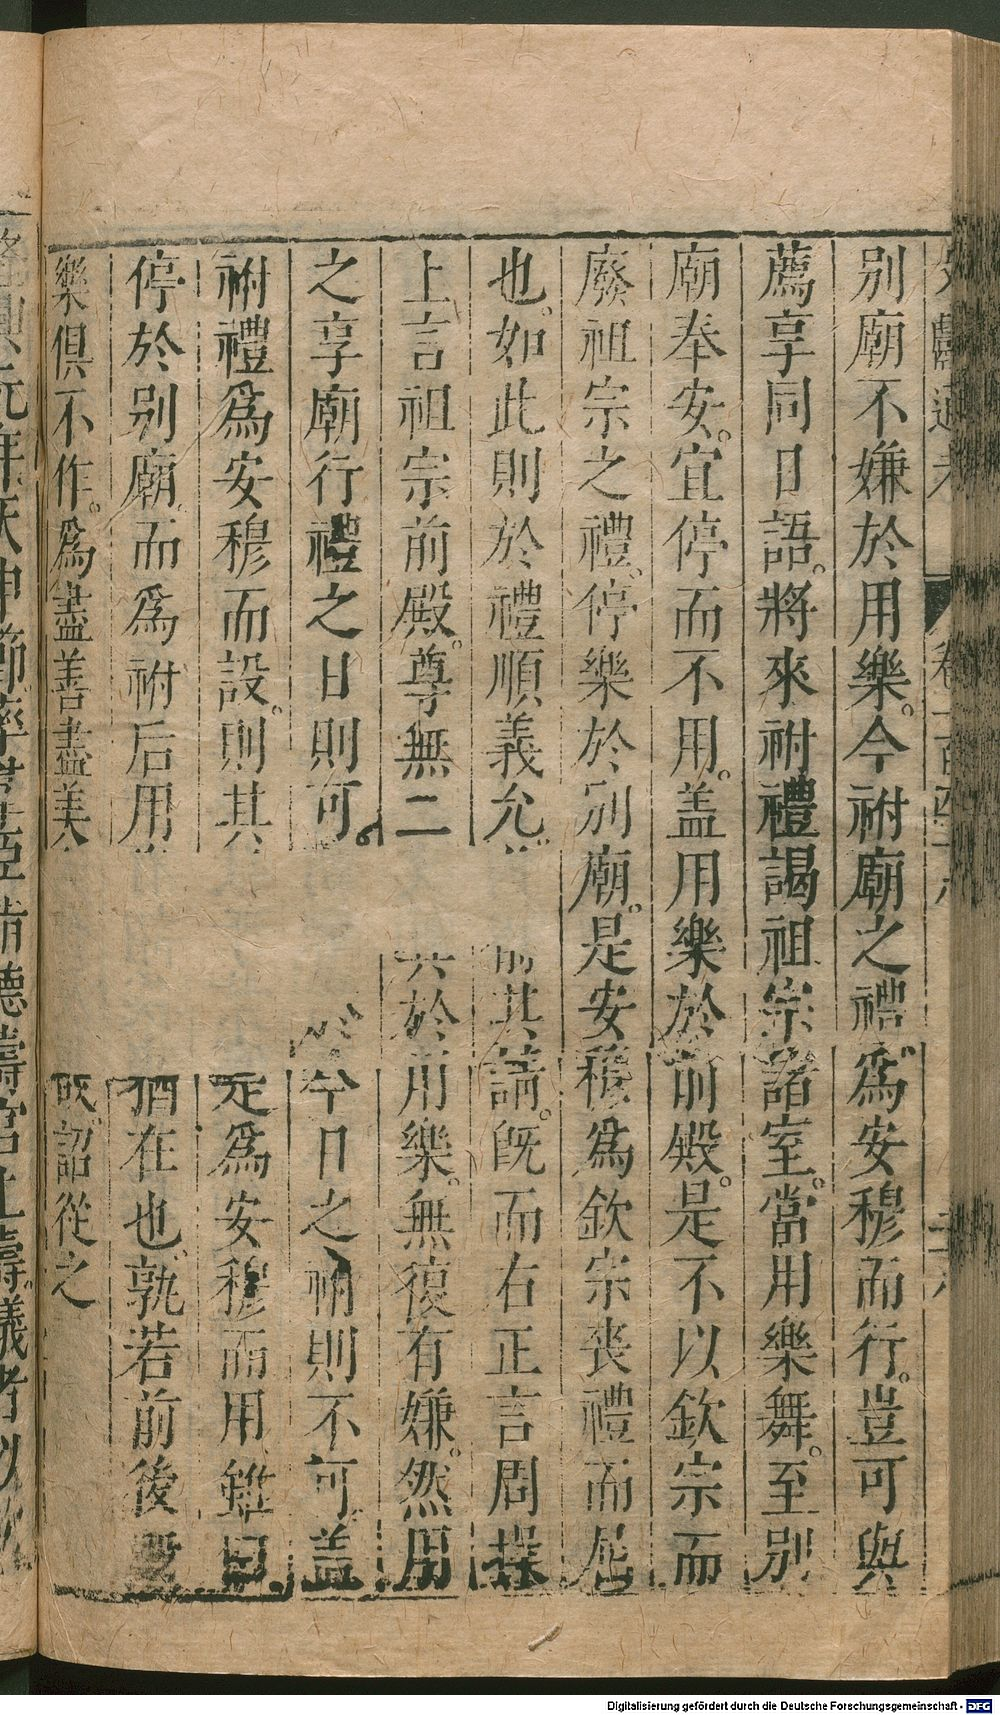 別廟不嫌於用樂今祔廟之禮爲安穆而行豈可與
薦享同日語將來祔禮謁祖宗諸室當用樂舞至別
廟奉安宜停而不用盖用樂於前殿是不以欽宗而
廢祖宗之禮停樂於別廟是安穆爲欽宗喪禮而屈
也如此則於禮順義允 其請旣而右正言周操
上言祖宗前殿尊無二 於用樂無復有嫌然用
之享廟行禮之日則可 於今日之祔則不可盖
祔禮爲安穆而設則其 定爲安穆而用雖曰
停於別廟而爲祔后用 猶在也孰若前後
樂俱不作爲盡善盡美 詔從之
Digitalisierung gefördert durch die Deutsche Forschungsgemeinschaft - DFG